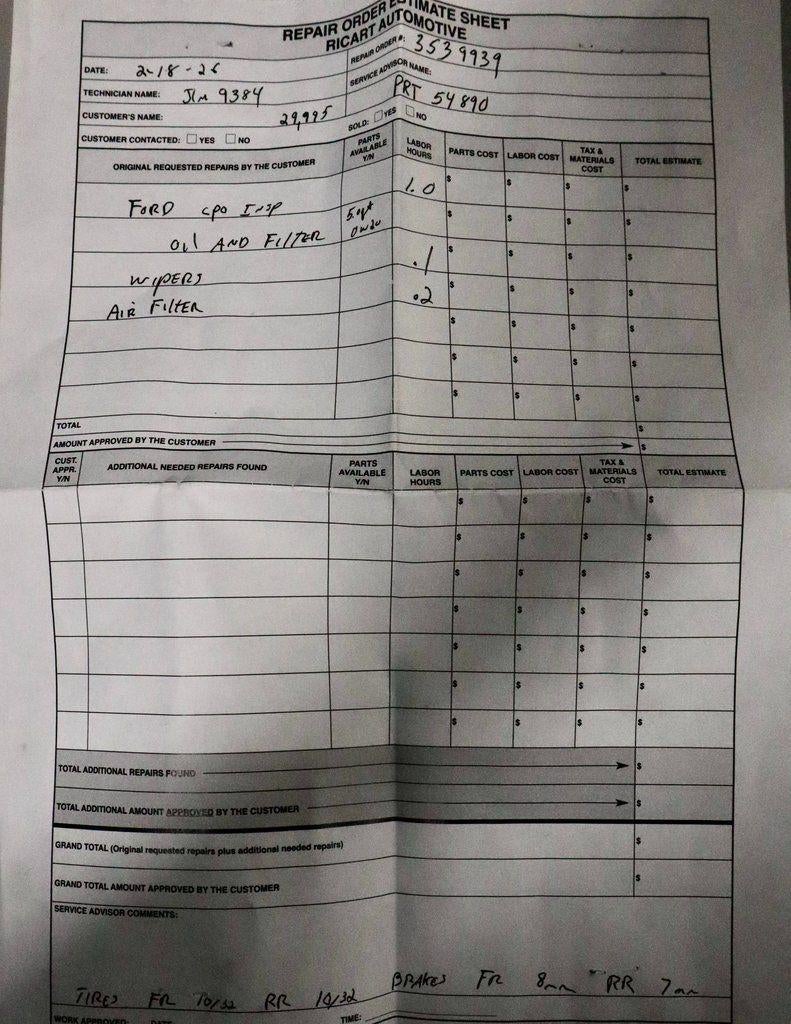 REPAIR ORDER ESTIMATE SHEET
RICART AUTOMOTIVE
DATE: 2-18-26 REPAIR ORDER #: 3539939
TECHNICIAN NAME: Jim 9384 SERVICE ADVISOR NAME: PRT 54890
CUSTOMER'S NAME: 29,995
CUSTOMER CONTACTED: ☐ YES ☐ NO SOLD: ☐ YES ☐ NO
ORIGINAL REQUESTED REPAIRS BY THE CUSTOMER PARTS AVAILABLE Y/N LABOR HOURS PARTS COST LABOR COST TAX & MATERIALS COST TOTAL ESTIMATE
FORD CPO INSP 1.0 $ $ $ $
OIL AND FILTER 0W20 $ $ $ $
WIPERS .1 $ $ $ $
AIR FILTER .2 $ $ $ $
$ $ $ $
$ $ $ $
$ $ $ $
TOTAL $
AMOUNT APPROVED BY THE CUSTOMER $
CUST. APPR. Y/N ADDITIONAL NEEDED REPAIRS FOUND PARTS AVAILABLE Y/N LABOR HOURS PARTS COST LABOR COST TAX & MATERIALS COST TOTAL ESTIMATE
$ $ $ $
$ $ $ $
$ $ $ $
$ $ $ $
$ $ $ $
$ $ $ $
$ $ $ $
TOTAL ADDITIONAL REPAIRS FOUND $
TOTAL ADDITIONAL AMOUNT APPROVED BY THE CUSTOMER $
GRAND TOTAL (Original requested repairs plus additional needed repairs) $
GRAND TOTAL AMOUNT APPROVED BY THE CUSTOMER $
SERVICE ADVISOR COMMENTS:
TIRES FR 10/32 RR 10/32 BRAKES FR 8mm RR 7mm
WORK APPROVED: DATE TIME: